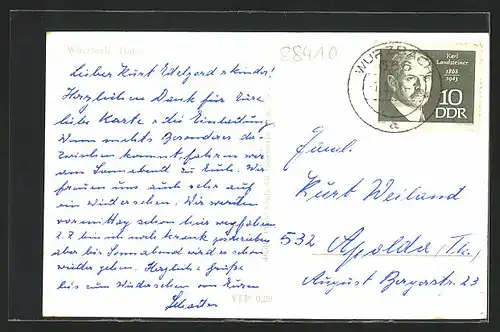 Wurzbach Thür.
88410
WURZBACH
a
Karl
Landsteiner
1868
1943
10
DDR
Lieber Kurt Edelgard & Kinder!
Herzlichen Dank für Eure
liebe Karte & die Einladung.
Wenn nichts Besonderes da-
zwischen kommt, fahren wir
am Sonnabend zu Euch. Wir
freuen uns auch sehr auf
ein Wiedersehen. Wir werden
vormittag schon hier wegfahren
Z Z bin ich noch krank geschrieben
aber bis Sonnabend wird es schon
wieder gehen. Herzliche Grüße
bis zum Wiedersehen von Euren
Faml.
Kurt Weiland
532 Apolda (Th.)
August Bergerstr. 23
VEP 0,20